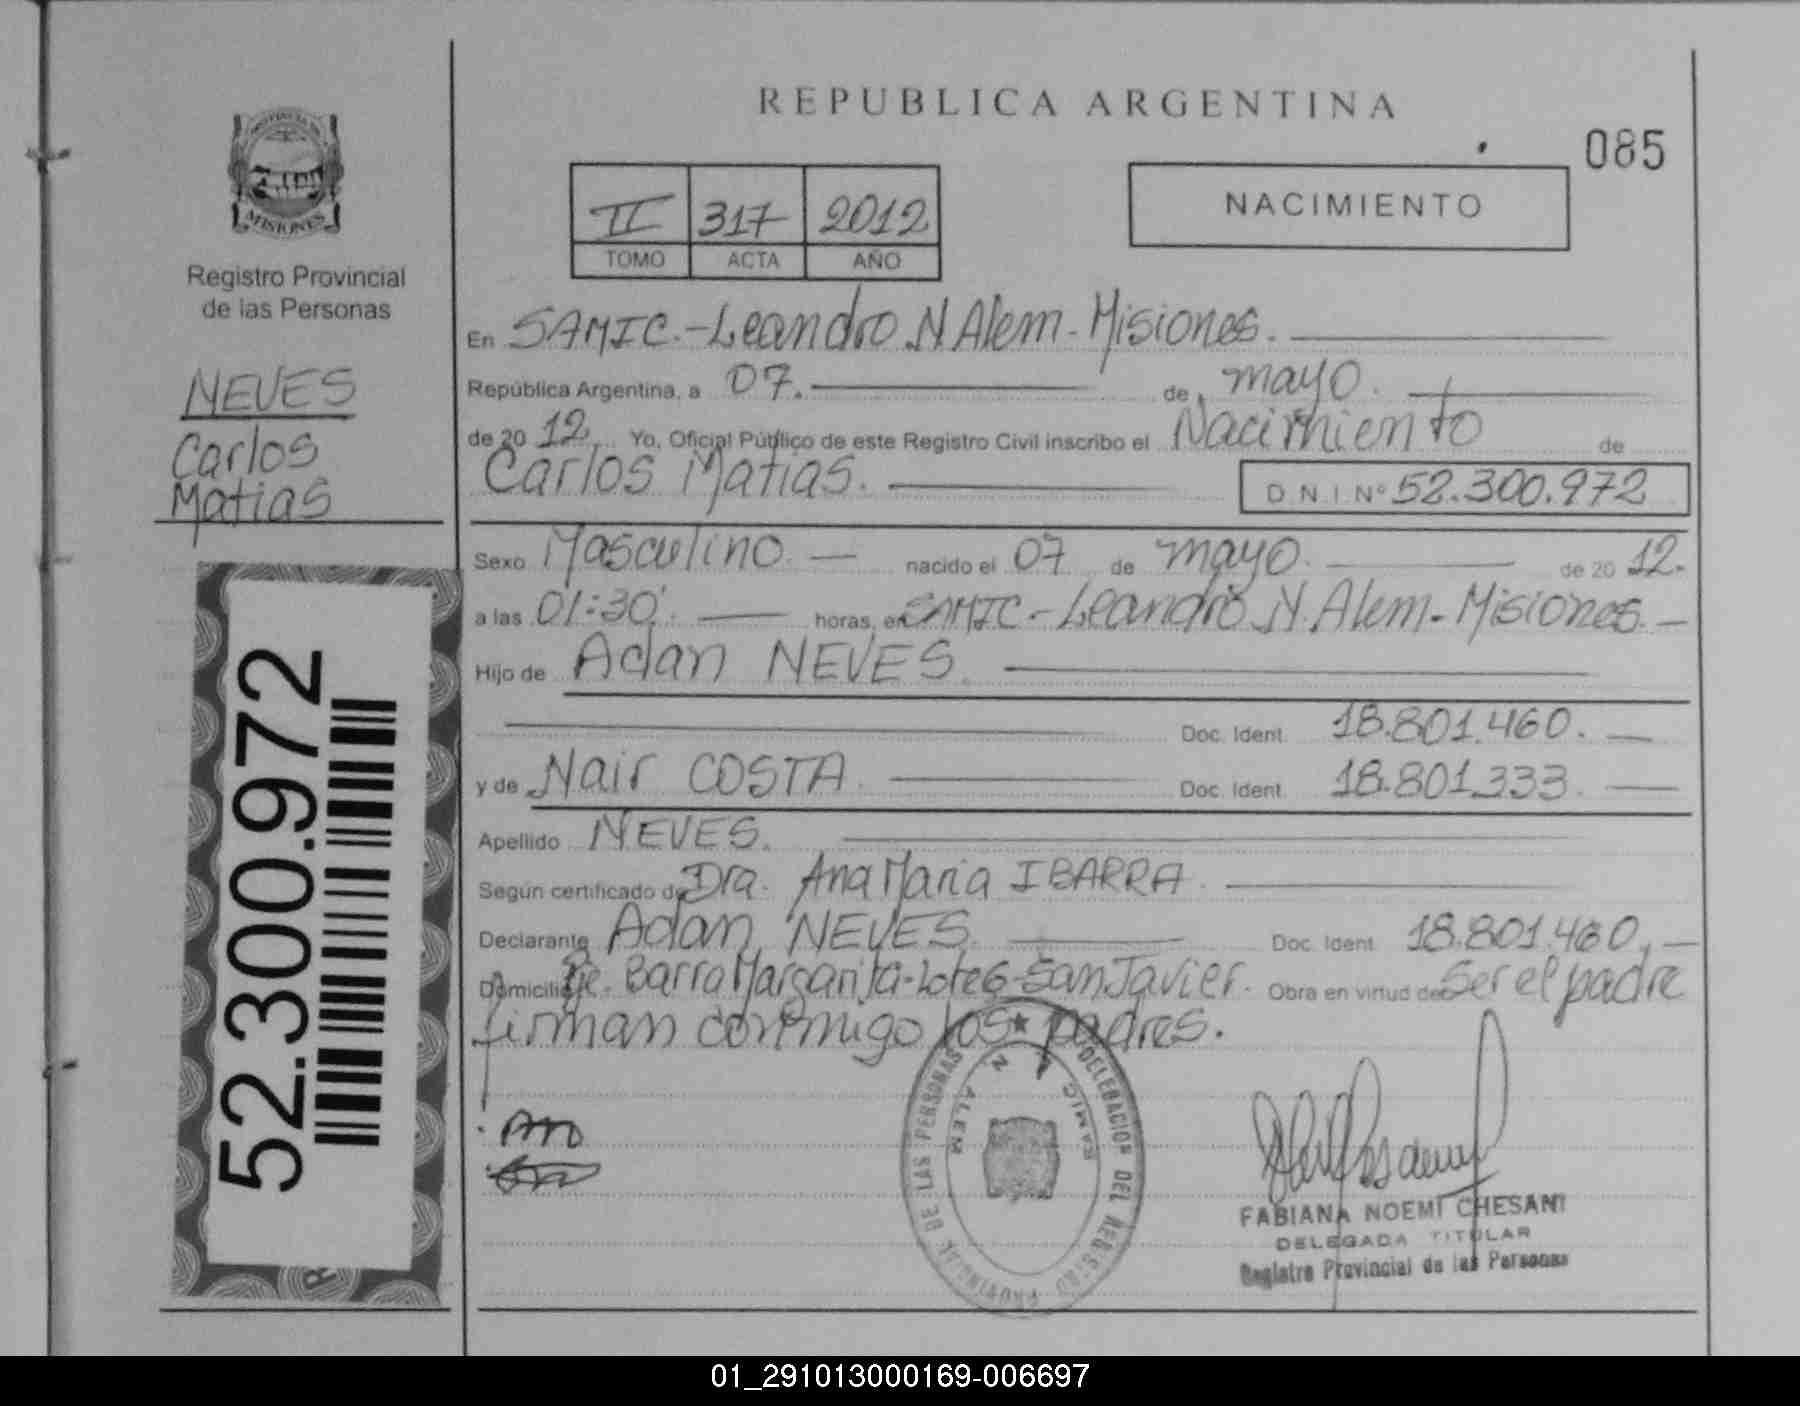 REPUBLICA ARGENTINA
085
PROVINCIA DE
MISIONES
Registro Provincial
de las Personas
NEVES
Carlos
Matias
52.300.972
II 317 2012
TOMO ACTA AÑO
NACIMIENTO
En SAMIC.-Leandro N Alem-Misiones.
República Argentina, a 07. de mayo.
de 20 12 Yo, Oficial Público de este Registro Civil inscribo el Nacimiento de
Carlos Matias. D.N.I. Nº 52.300.972
Sexo Masculino. nacido el 07 de mayo. de 20 12.
a las 01:30. horas, en SAMIC-Leandro N. Alem-Misiones.
Hijo de Adan NEVES.
Doc. Ident. 18.801.460.
y de Nair COSTA. Doc. Ident. 18.801.333.
Apellido NEVES.
Según certificado de Dra. Ana Maria IBARRA.
Declarante Adan NEVES. Doc. Ident. 18.801.460.
Domicilio Barra Margarita-Lote6-San Javier. Obra en virtud de Ser el padre
firman conmigo los padres.
DELEGACION DEL REGISTRO PROVINCIAL DE LAS PERSONAS
SAMIC
N ALEM
FABIANA NOEMI CHESANI
DELEGADA TITULAR
Registro Provincial de las Personas
01_291013000169-006697